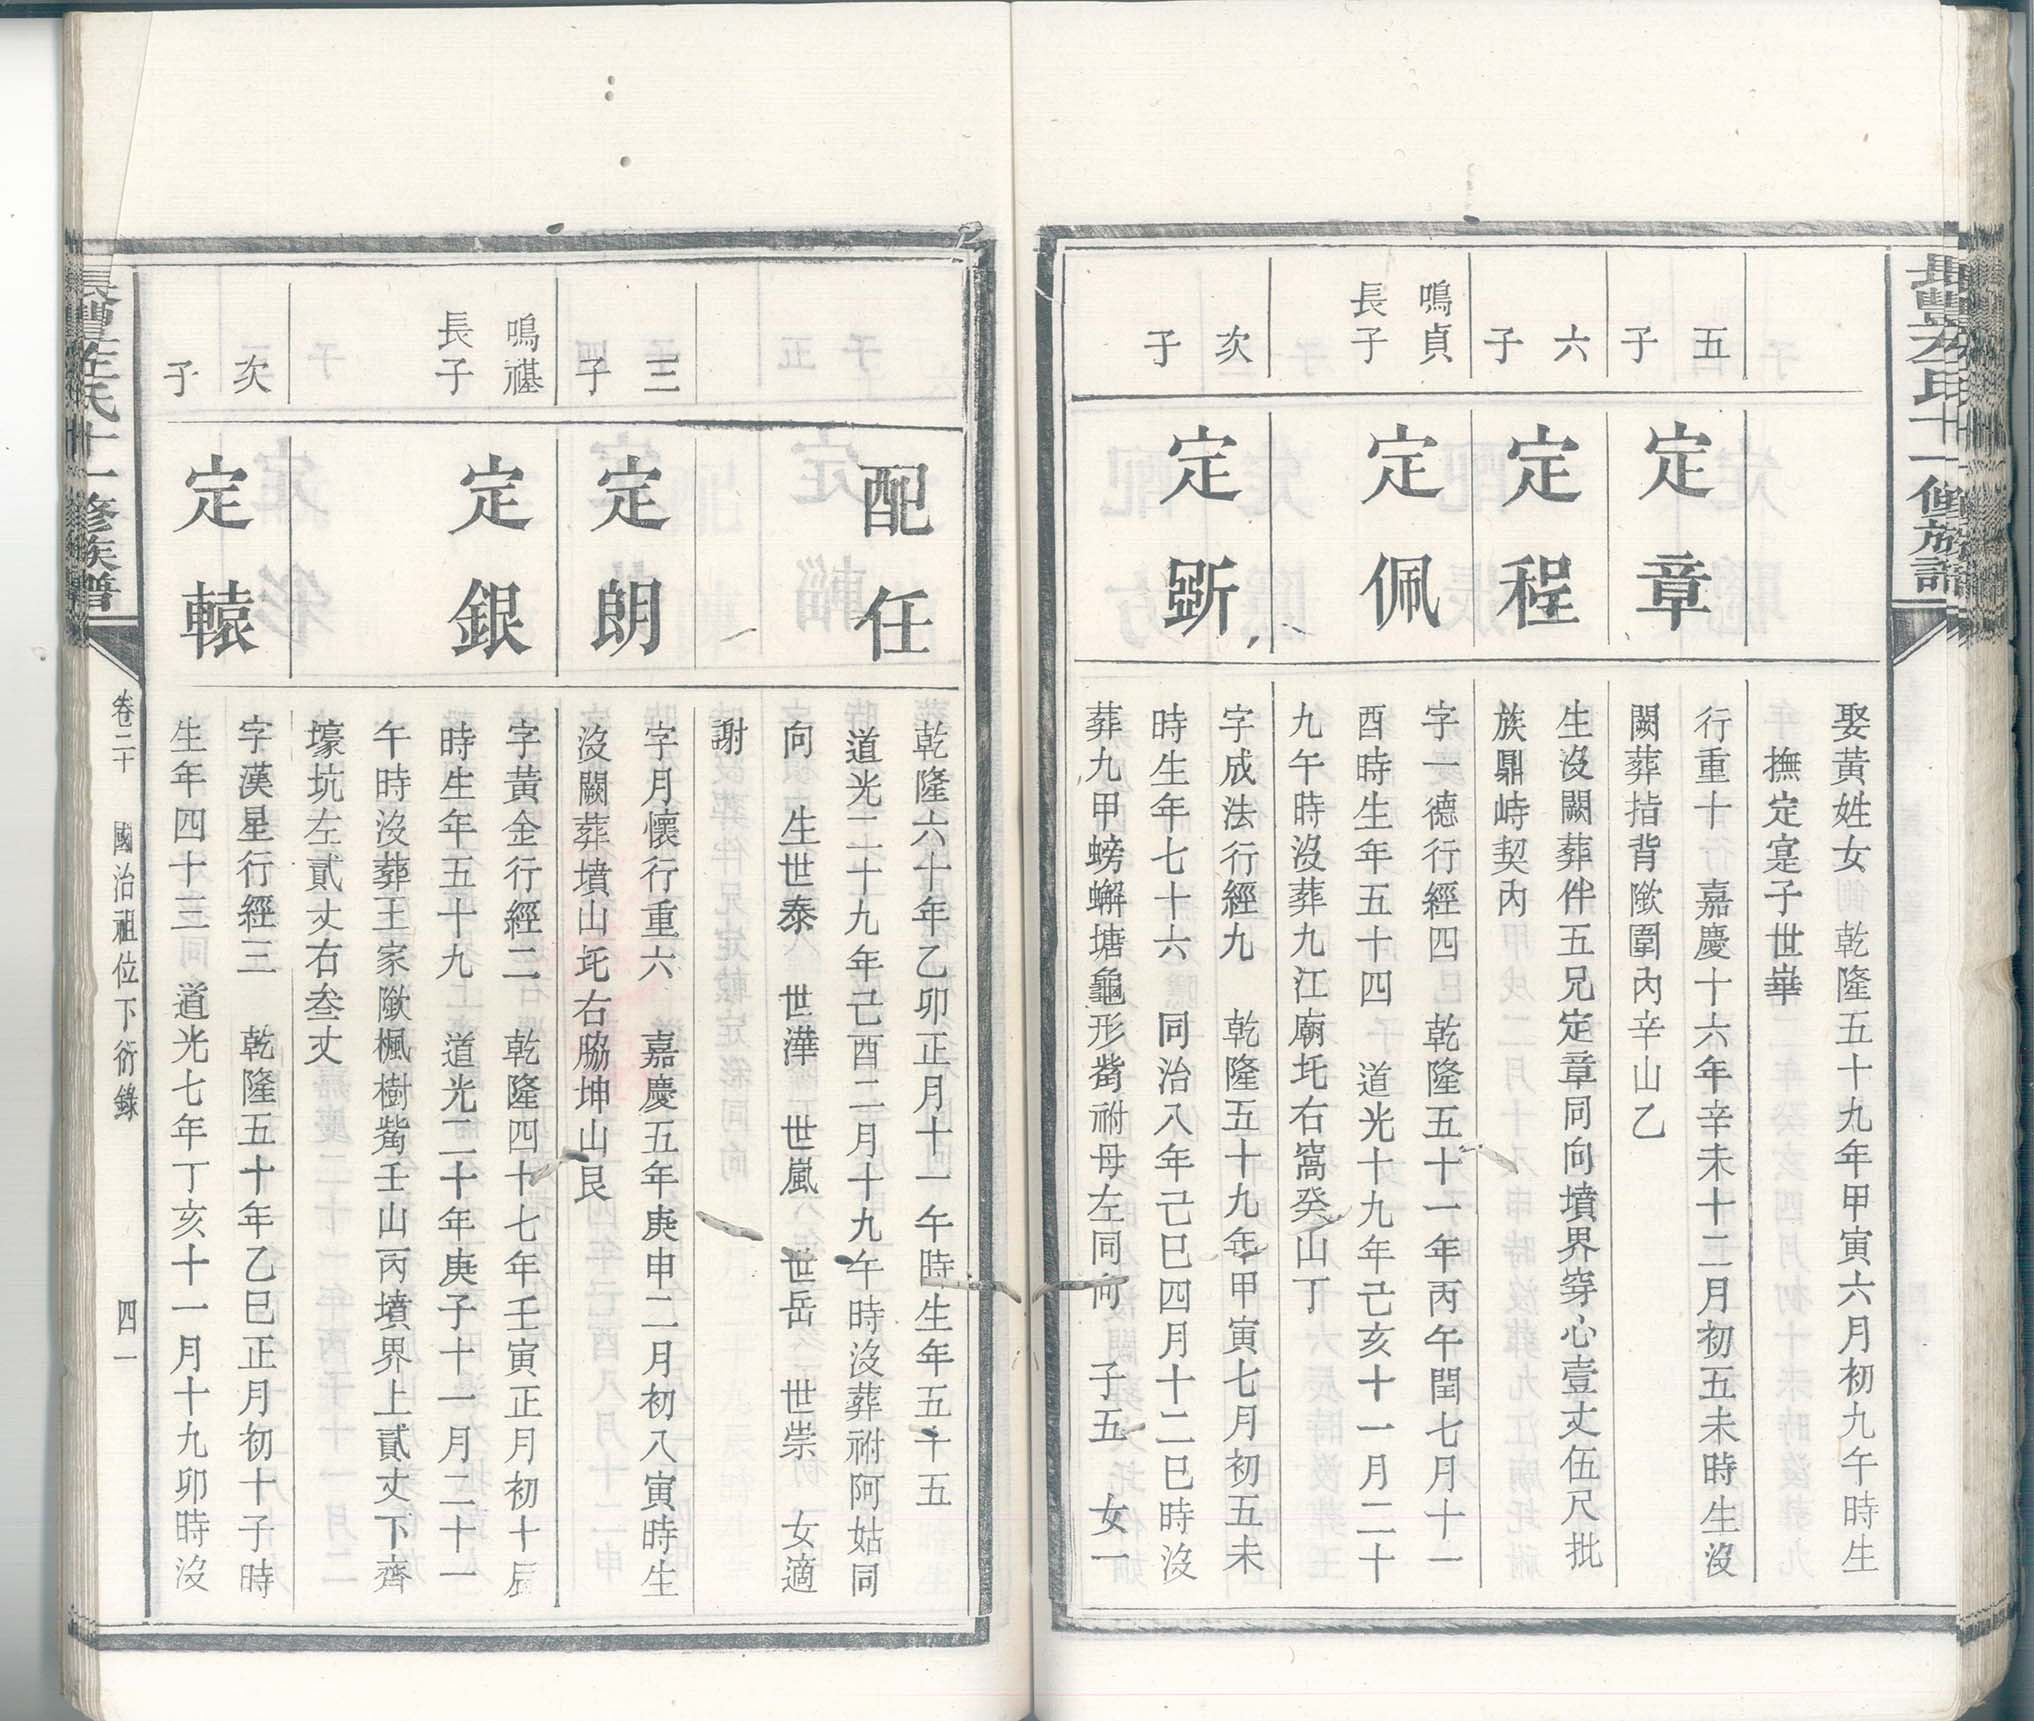 長豐左氏十一修族譜
娶黃姓女　乾隆五十九年甲寅六月初九午時生
撫定寔子世崋
五子
定章
行重十　嘉慶十六年辛未十二月初五未時生沒
闕葬指背隞圍內辛山乙
六子
定程
生沒闕葬伴五兄定章同向墳界穿心壹丈伍尺批
族鼎峙契內
鳴貞長子
定佩
字一德行經四　乾隆五十一年丙午閏七月十一
酉時生年五十四　道光十九年己亥十一月二十
九午時沒葬九江廟圫右窩癸山丁
次子
定斷
字成法行經九　乾隆五十九年甲寅七月初五未
時生年七十六　同治八年己巳四月十二巳時沒
葬九甲螃蠏塘龜形觜祔母左同向　子五　女一
配任
乾隆六十年乙卯正月十一午時生年五十五
道光二十九年己酉二月十九午時沒葬祔阿姑同
向　生世泰　世澕　世嵐　世岳　世崇　女適
謝
三子
定朗
字月懷行重六　嘉慶五年庚申二月初八寅時生
沒闕葬墳山圫右脇坤山艮
鳴禥長子
定銀
字黃金行經二　乾隆四十七年壬寅正月初十辰
時生年五十九　道光二十年庚子十一月二十一
午時沒葬王家隞楓樹觜壬山丙墳界上貳丈下齊
壕坑左貳丈右叁丈
次子
定轅
字漢星行經三　乾隆五十年乙巳正月初十子時
生年四十三　道光七年丁亥十一月十九卯時沒
長豐左氏十一修族譜
卷二十　國治祖位下衍錄　四一